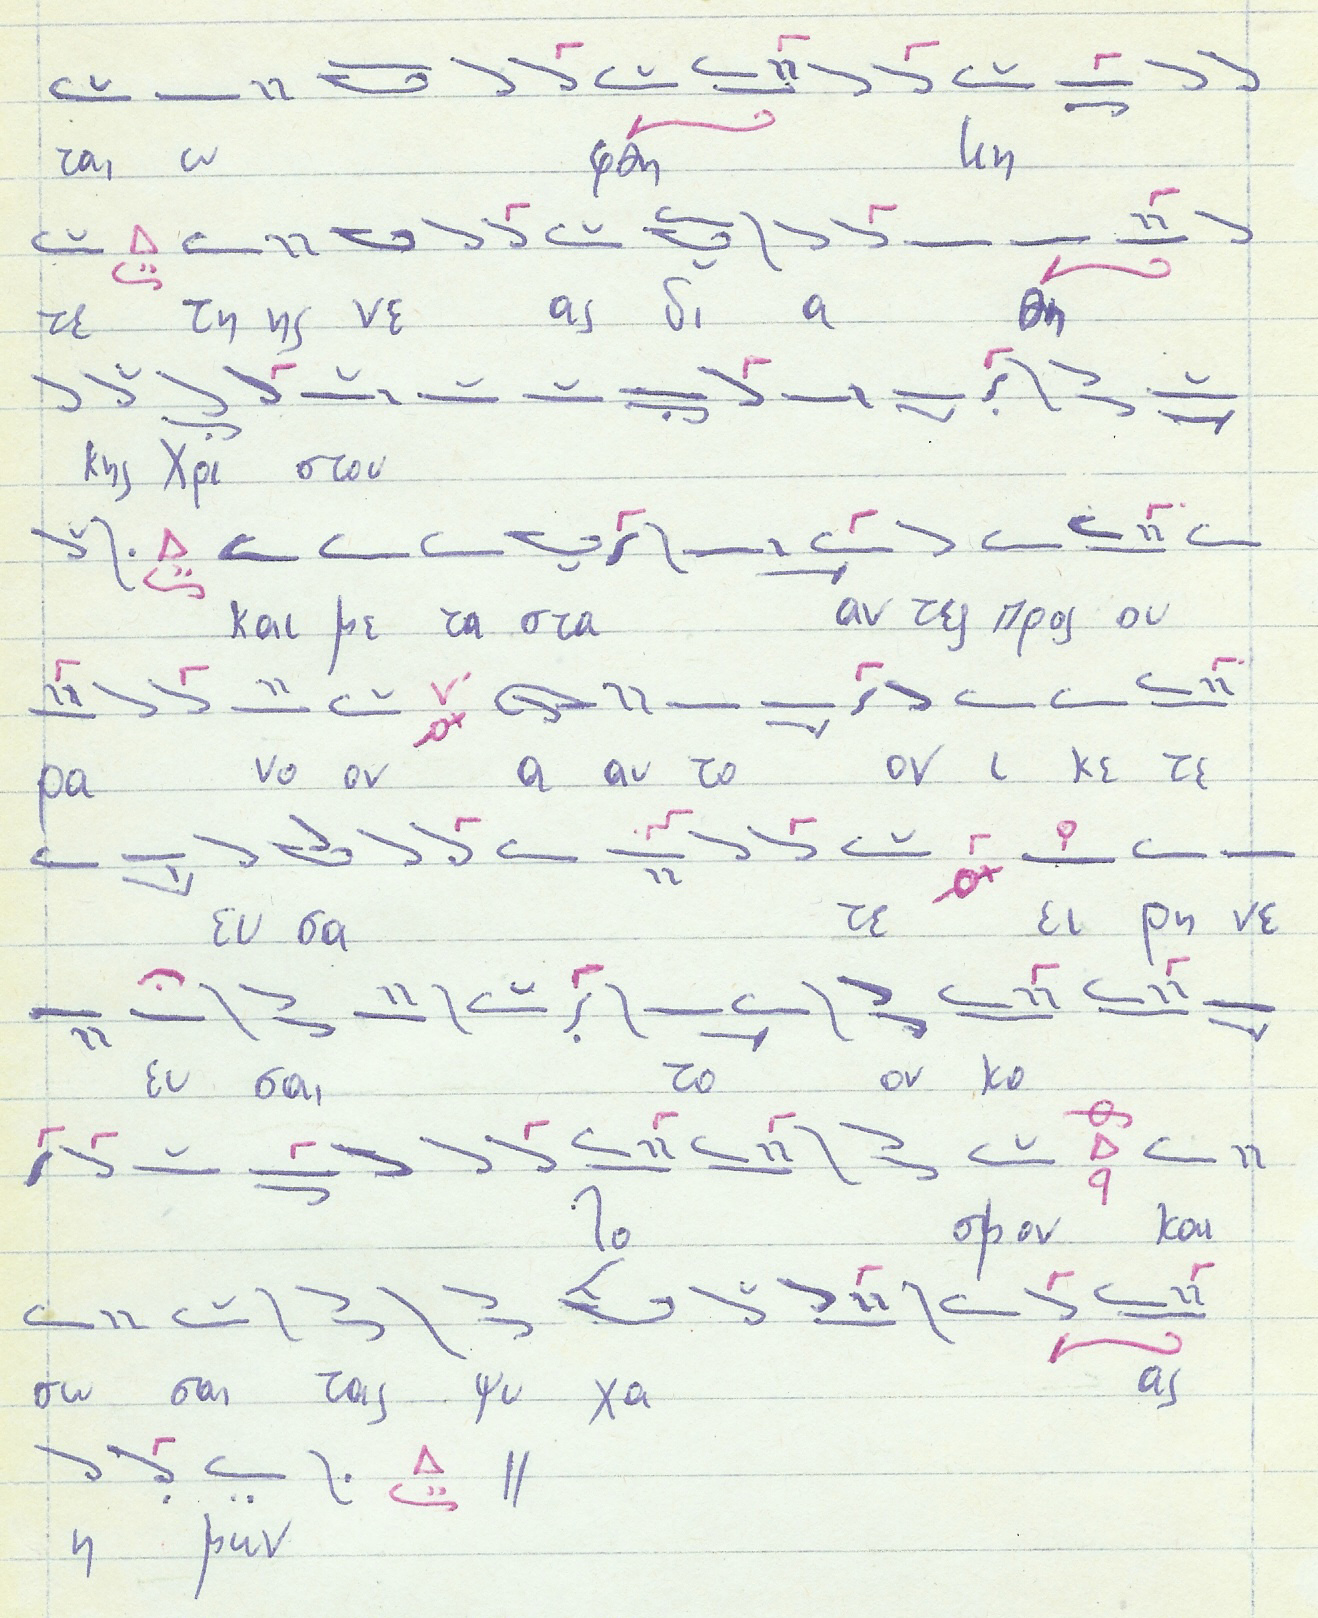 ται ω φθη κη
τε της γης νε ας δι α θη
κης Χρι στου
και με τα στα αν τες προς ου
ρα νο ον α αυ το ον ι κε τε
ευ σα τε ει ρη νε
ευ σαι το ον κο
ο σμον και
σω σαι τας ψυ χα ας
η μων